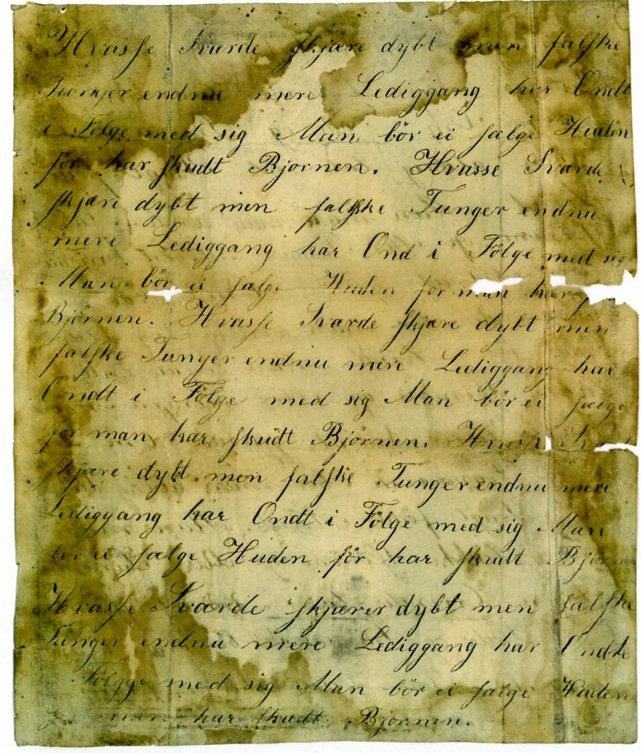 Hvasse Svarde skjære dybt men falske
Tunger endnu mere Lediggang har Ondt
i Følge med sig Man bör ei sælge Huden
för har skudt Bjornen. Hvasse Svarde
skjære dybt men falske Tunger endnu
mere Lediggang har Ond i Følge med sig
Man bör ei salge Huden for man har
Bjørnen. Hvasse Svarde skjære dybt men
falske Tunger endnu mere Lediggang har
Ondt i Følge med sig Man bör ei sælge
for man har skudt Björnen. Hvasse
skjære dybt men falske Tunger endnu mere
Lediggang har Ondt i Følge med sig Man
bör ei sælge Huden för har skudt Björn
Hvasse Sværde skjærer dybt men falske
Tunger endnu mere Lediggang har Ondt
Følgge med sig Man bör ei salge Huden
men har skudt Bjornen.